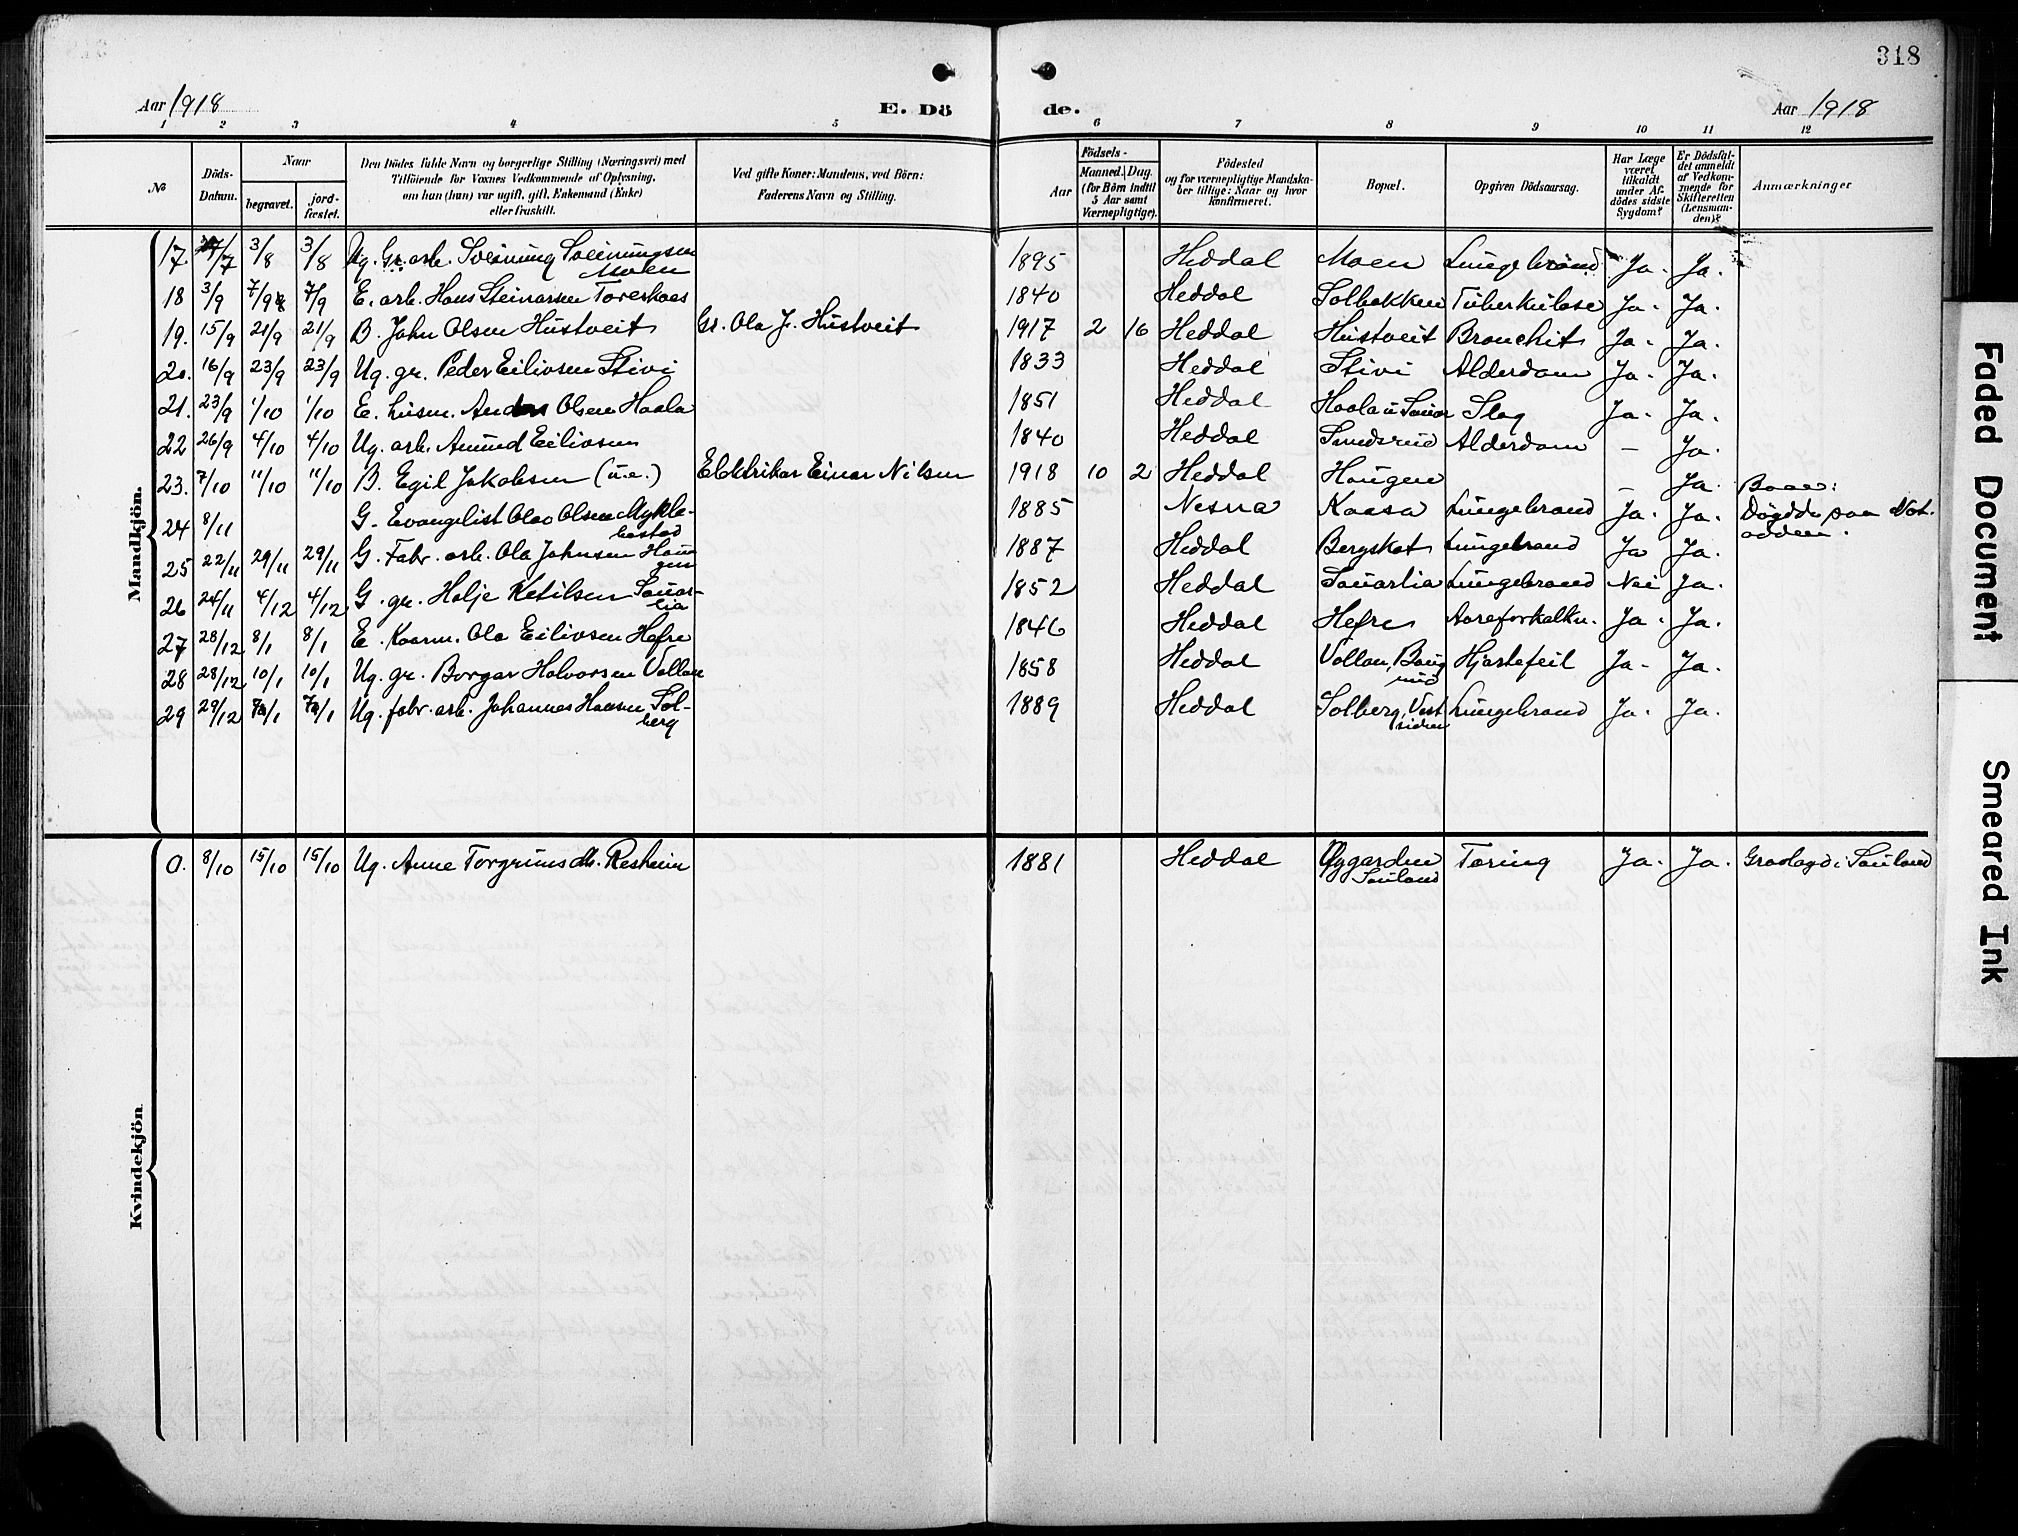 318
Aar 1918 E. Dö de. Aar 1918
1 2 3 4 5 6 7 8 9 10 11 12
№ Döds-Datum. Naar begravet. jord-fæstet. Den Dödes fulde Navn og borgerlige Stilling (Næringsvei) med Tilföiende for Voxnes Vedkommende af Oplysning, om hun (han) var ugift, gift, Enkemand (Enke) eller fraskilt. Ved gifte Koner: Mandens, ved Börn: Faderens Navn og Stilling. Födsels- Aar Maaned. Dag. (for Börn indtil 5 Aar samt Værnepligtige). Födested og for værnepligtige Mandskaber tillige: Naar og hvor konfirmeret. Bopæl. Opgiven Dödsaarsag. Har Læge været tilkaldt under Afdödes sidste Sygdom? Er Dödsfaldet anmeldt af Vedkommende for Skifteretten (Lensmanden)? Anmærkninger
Mandkjön.
17 /7 3/8 3/8 Ug. Gr. arb. Sveinung Sveinungsen Moen 1895 Heddal Moen Lungebrand Ja. Ja.
18 3/9 7/9 7/9 E. arb. Hans Steinarsen Toreskaas 1840 Heddal Solbakken Tuberkulose Ja. Ja.
19. 15/9 21/9 21/9 B. John Olsen Hustveit Gr. Ola J. Hustveit 1917 2 16 Heddal Hustveit Bronchit Ja. Ja.
20. 16/9 23/9 23/9 Ug. gr. Peder Eilivsen Stivi 1833 Heddal Stivi Alderdom Ja. Ja.
21. 23/9 1/10 1/10 E. husm. Anders Olsen Haala 1851 Heddal Haala u Sauar Slag Ja. Ja.
22 26/9 4/10 4/10 Ug. arb. Amund Eilivsen 1840 Heddal Smedsrud Alderdom — Ja.
23. 7/10 11/10 11/10 B. Egil Jakobsen (u.e.) Elektriker Einar Nilsen 1918 10 2 Heddal Haugen — Ja.
24 8/11 G. Evangelist Olav Olsen Myklebustad 1885 Nesna Kaasa Lungebrand Ja. Ja. Døgdde paa Notodden.
25 22/11 29/11 29/11 G. Fabr. arb. Ola Johnsen Haugen 1887 Heddal Bergskot Lungebrand Ja Ja.
26 24/11 4/12 4/12 G. gr. Halje Ketilsen Sauarlia 1852 Heddal Sauarlia Lungebrand Nei Ja.
27 28/12 8/1 8/1 E. Kaarm. Ola Eilivsen Hefre 1846 Heddal Hefre Aareforkalkn. Ja. Ja.
28 28/12 10/1 10/1 Ug. gr. Borgar Halvorsen Vollan 1858 Heddal Vollan, Bøig Hjertefeil Ja. Ja.
29 29/12 /1 /1 Ug. fabr. arb. Johannes Hansen Solberg 1889 Heddal Solberg, Vestsiden Lungebrand Ja. Ja.
Kvindekjön
0. 8/10 15/10 15/10 Ug. Anne Torgrimsdtr. Resheim 1881 Heddal Øygarden Sauland Tæring Ja. Ja. Gravlagd i Sauland
Faded Document
Smeared Ink